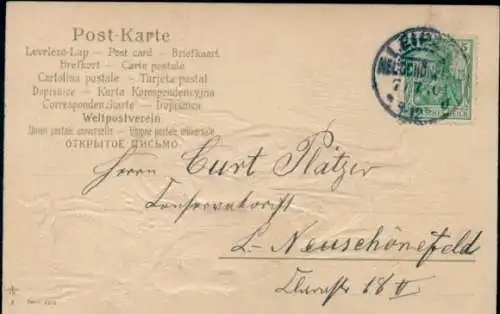 Post-Karte
Levelezo-Lap — Post card — Briefkaart
Brefkort — Carte postale
Cartolina postale — Tarjeta postal
Dopisnice — Karta Korespondencyjna
Correspondenzkarte — Dopisnica
Weltpostverein
Union postale universelle — Unione postale universale
ОТКРЫТОЕ ПИСЬМО
LEIP
NEUSCHÖN
5
Herrn Curt Plätzer
L.- Neuschönefeld
18 II